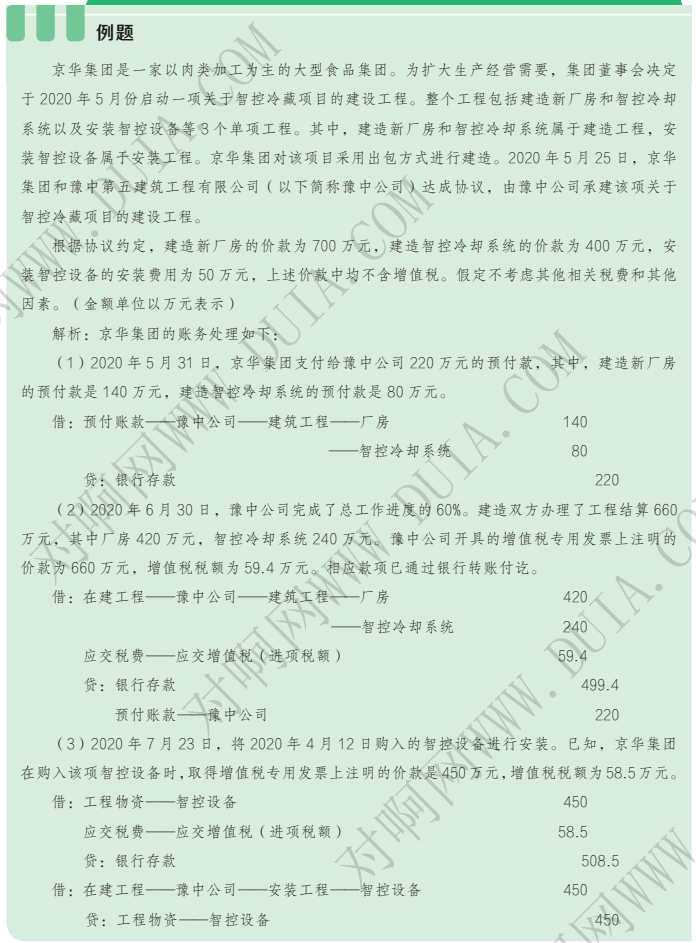 例题
京华集团是一家以肉类加工为主的大型食品集团。为扩大生产经营需要，集团董事会决定
于 2020 年 5 月份启动一项关于智控冷藏项目的建设工程。整个工程包括建造新厂房和智控冷却
系统以及安装智控设备等 3 个单项工程。其中，建造新厂房和智控冷却系统属于建造工程，安
装智控设备属于安装工程。京华集团对该项目采用出包方式进行建造。2020 年 5 月 25 日，京华
集团和豫中第五建筑工程有限公司（以下简称豫中公司）达成协议，由豫中公司承建该项关于
智控冷藏项目的建设工程。
根据协议约定，建造新厂房的价款为 700 万元，建造智控冷却系统的价款为 400 万元，安
装智控设备的安装费用为 50 万元，上述价款中均不含增值税。假定不考虑其他相关税费和其他
因素。（金额单位以万元表示）
解析：京华集团的账务处理如下：
（1）2020 年 5 月 31 日，京华集团支付给豫中公司 220 万元的预付款，其中，建造新厂房
的预付款是 140 万元，建造智控冷却系统的预付款是 80 万元。
借：预付账款——豫中公司——建筑工程——厂房 140
——智控冷却系统 80
贷：银行存款 220
（2）2020 年 6 月 30 日，豫中公司完成了总工作进度的 60%。建造双方办理了工程结算 660
万元，其中厂房 420 万元，智控冷却系统 240 万元。豫中公司开具的增值税专用发票上注明的
价款为 660 万元，增值税税额为 59.4 万元。相应款项已通过银行转账付讫。
借：在建工程——豫中公司——建筑工程——厂房 420
——智控冷却系统 240
应交税费——应交增值税（进项税额） 59.4
贷：银行存款 499.4
预付账款——豫中公司 220
（3）2020 年 7 月 23 日，将 2020 年 4 月 12 日购入的智控设备进行安装。已知，京华集团
在购入该项智控设备时，取得增值税专用发票上注明的价款是 450 万元，增值税税额为 58.5 万元。
借：工程物资——智控设备 450
应交税费——应交增值税（进项税额） 58.5
贷：银行存款 508.5
借：在建工程——豫中公司——安装工程——智控设备 450
贷：工程物资——智控设备 450
对啊网WWW.DUIA.COM